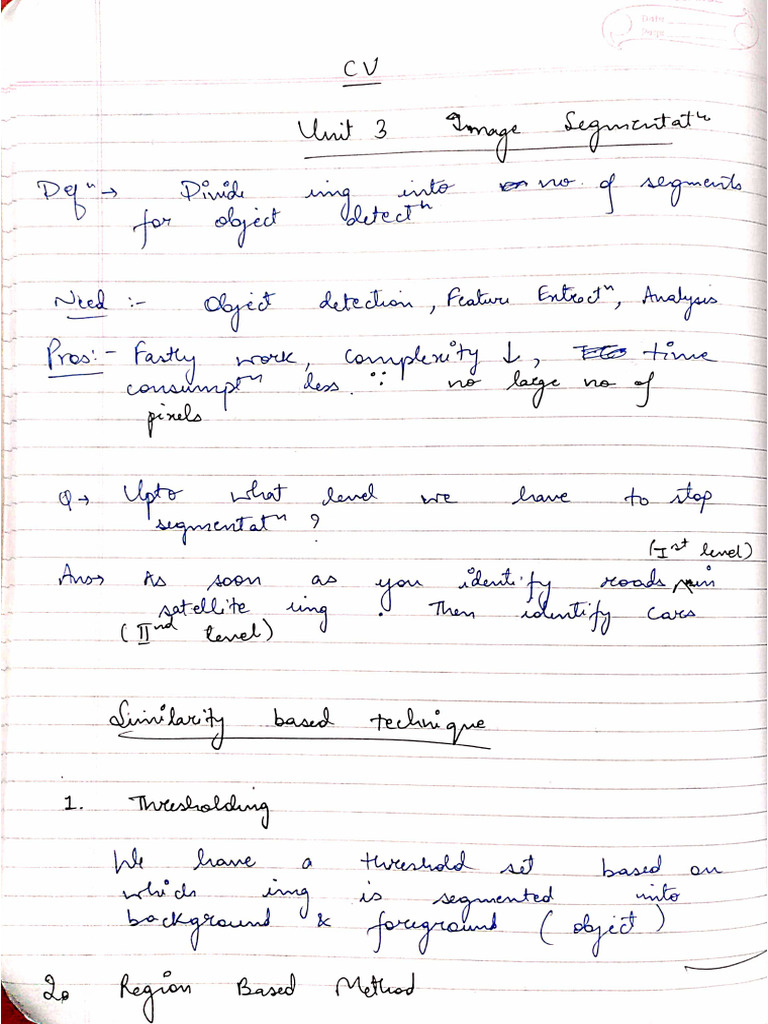 Date
Page
CV
Unit 3 Image Segmentatⁿ
Defⁿ → Divide img into no. of segments
for object detectⁿ
Need :- Object detection, Feature Extractⁿ, Analysis
Pros:- Fastly work, complexity ↓, time
consumptⁿ less. ∵ no large no of
pixels
Q → Upto what level we have to stop
segmentatⁿ ?
(Iˢᵗ level)
Ans → As soon as you identify roads in
satellite img . Then identify cars
(IIⁿᵈ level)
Similarity based technique
1. Thresholding
We have a threshold set based on
which img is segmented into
background & foreground (object)
2. Region Based Method